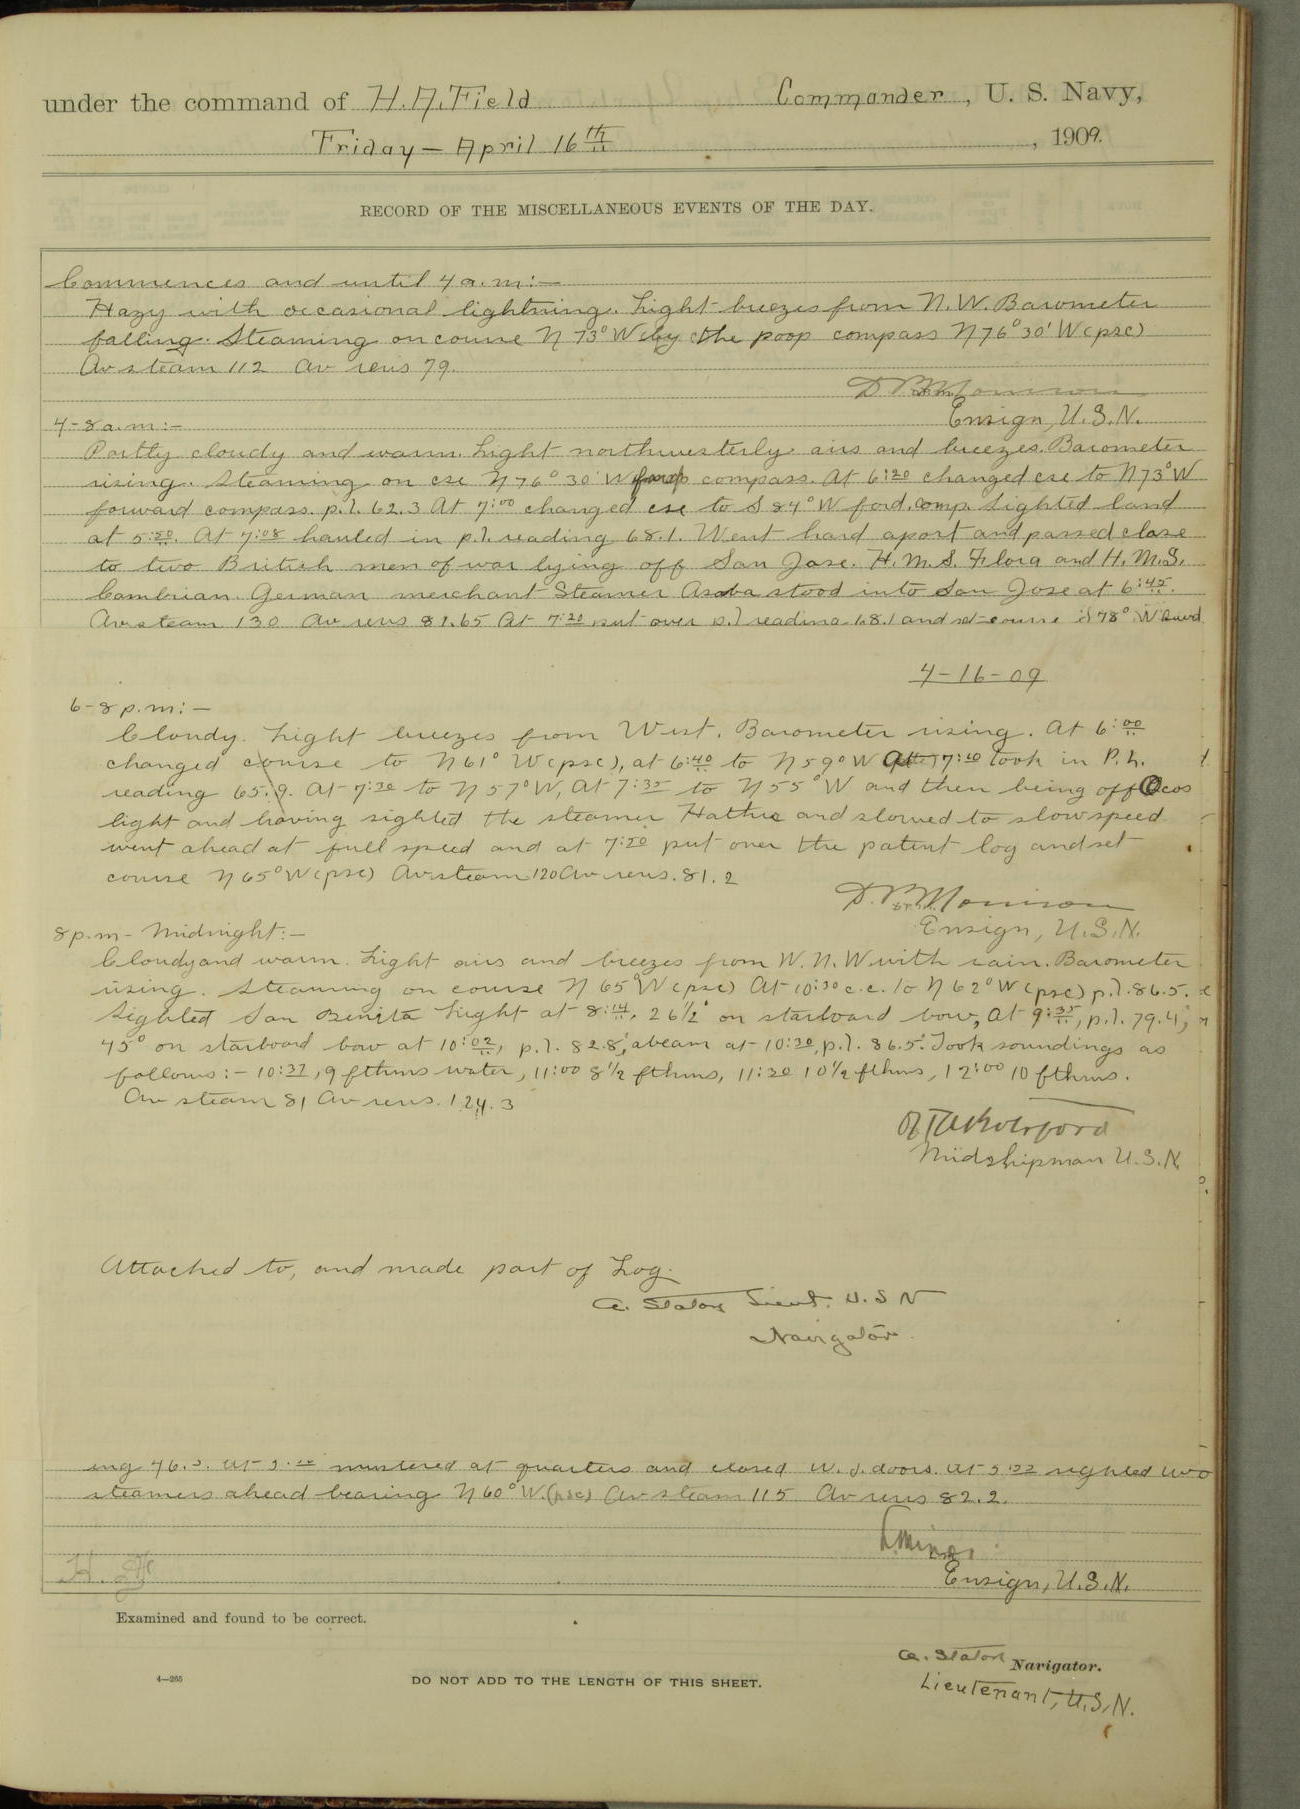 under the command of H. A. Field Commander, U. S. Navy,
Friday — April 16th, 1909.
RECORD OF THE MISCELLANEOUS EVENTS OF THE DAY.
Commences and until 4 a.m:—
Hazy with occasional lightning. Light breezes from N.W. Barometer
falling. Steaming on course N 73° W by the poop compass N 76° 30' W (psc)
Av steam 112 Av revs 79.
Ensign, U.S.N.
4-8 a.m:—
Partly cloudy and warm. Light northwesterly airs and breezes. Barometer
rising. Steaming on cse N 76° 30' W compass. At 6:20 changed cse to N 73° W
forward compass. p.l. 62.3 At 7:00 changed cse to S 84° W ford. comp. Sighted land
at 5:50. At 7:08 hauled in p.l. reading 68.1. Went hard aport and passed close
to two British men of war lying off San Jose. H.M.S. Flora and H.M.S.
Cambrian. German merchant Steamer stood into San Jose at 6:45.
Av steam 130 Av revs 81.65 At 7:20 put over p.l reading 68.1 and set course S 78° W
4-16-09
6-8 p.m:—
Cloudy. Light breezes from West. Barometer rising. At 6:00
changed course to N 61° W (psc), at 6:40 to N 59° W At 7:10 took in P.L.
reading 65.9. At 7:30 to N 57° W, At 7:35 to N 55° W and then being off Ocos
light and having sighted the steamer Hathie and slowed to slow speed
went ahead at full speed and at 7:50 put over the patent log and set
course N 65° W (psc) Av steam 120 Av revs. 81.2
D. P. Morrison
Ensign, U.S.N.
8 p.m - Midnight:—
Cloudy and warm. Light airs and breezes from W.N.W with rain. Barometer
rising. Steaming on course N 65° W (psc) At 10:30 c.c. to N 62° W (psc) p.l. 86.5.
Sighted San Benita Light at 8:14, 26 1/2° on starboard bow, At 9:35, p.l. 79.4,
45° on starboard bow at 10:02, p.l. 82.8, abeam at 10:30, p.l. 86.5. Took soundings as
follows:- 10:37, 9 fthms water, 11:00 8 1/2 fthms, 11:30 10 1/2 fthms, 12:00 10 fthms.
Av steam 81 Av revs. 124.3
Midshipman U.S.N.
Attached to, and made part of Log.
A. Staton Lieut. U.S N
Navigator.
ing 46.3. mustered at quarters and closed w.t. doors. sighted two
steamers ahead bearing N 60° W. (psc) Av steam 115 Av revs 82.2.
Ensign, U.S.N.
Examined and found to be correct.
A. Staton Navigator.
Lieutenant, U.S.N.
4—265
DO NOT ADD TO THE LENGTH OF THIS SHEET.